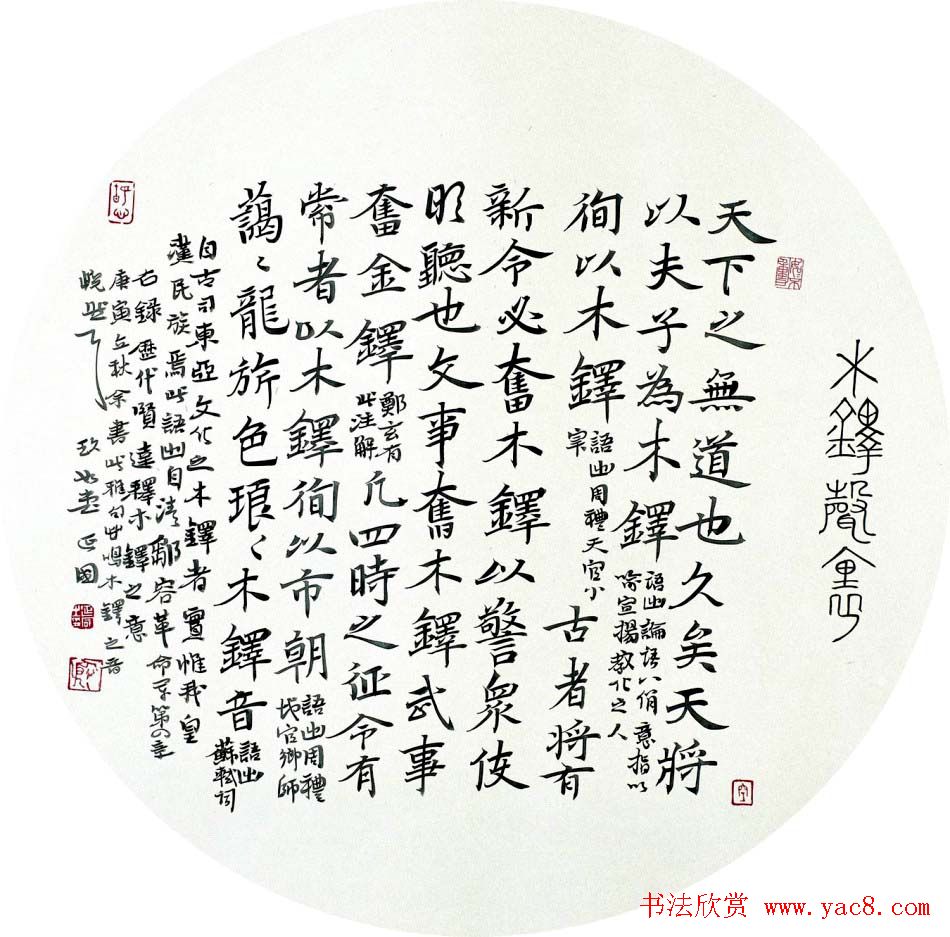 木鐸聲
天下之無道也久矣天將
以夫子為木鐸
語出論語八佾意指以
喻宣揚教化之人
徇以木鐸
語出周禮天官小
宰
古者將有
新令必奮木鐸以警眾使
明聽也文事奮木鐸武事
奮金鐸
鄭玄有
此注解
凡四時之征令有
常者以木鐸徇以市朝
語出周禮
地官鄉師
藹〻龍旂色琅〻木鐸音
語出
蘇軾詞
自古司東亞文化之木鐸者實惟我皇
漢民族焉此語出自清鄒容革命軍第四章
右錄歷代賢達釋木鐸之意
庚寅立秋余書此雅句 鳴木鐸之音
正國
书法欣赏 www.yac8.com